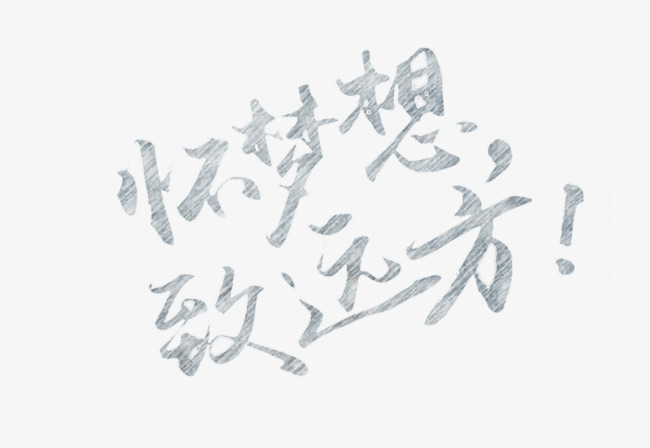 怀梦想,
致远方!